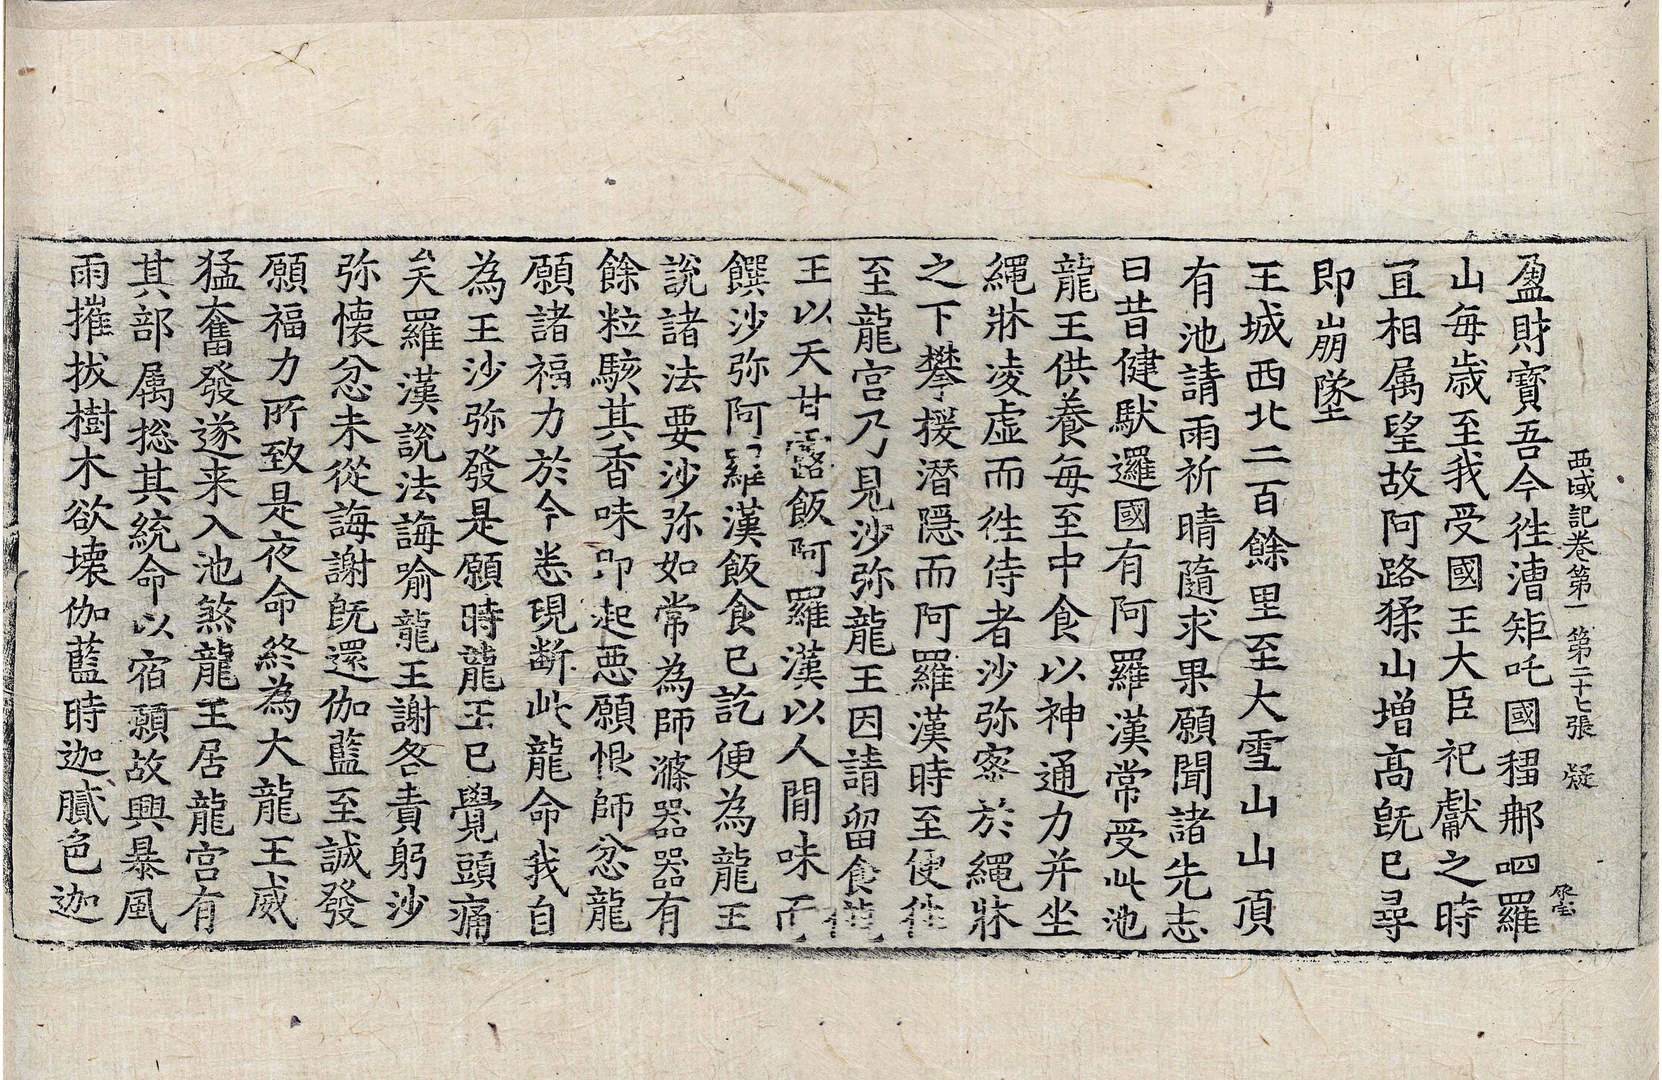 西域記卷第一 第二十七張 凝
盈財寶吾今徃漕矩吒國穪𨚗呬羅
山每歲至我受國王大臣祀獻之時
冝相属望故阿路猱山增髙旣巳尋
即崩墜
王城西北二百餘里至大雪山山頂
有池請雨祈晴隨求果願聞諸先志
曰昔健馱邏國有阿羅漢常受此池
龍王供養每至中食以神通力并坐
繩牀凌虛而徃侍者沙弥密於繩牀
之下攀援潛隱而阿羅漢時至便徃
至龍宮乃見沙弥龍王因請留食龍
王以天甘露飯阿羅漢以人間味而
饌沙弥阿羅漢飯食巳訖便為龍王
說諸法要沙弥如常為師滌器器有
餘粒駭其香味即起惡願恨師忿龍
願諸福力於今悉現斷此龍命我自
為王沙弥發是願時龍王巳覺頭痛
矣羅漢說法誨喻龍王謝咎責躬沙
弥懷忿未從誨謝旣還伽藍至誠發
願福力所致是夜命終為大龍王威
猛奮發遂来入池煞龍王居龍宮有
其部属揔其統命以宿願故興暴風
雨摧拔樹木欲壞伽藍時迦膩色迦